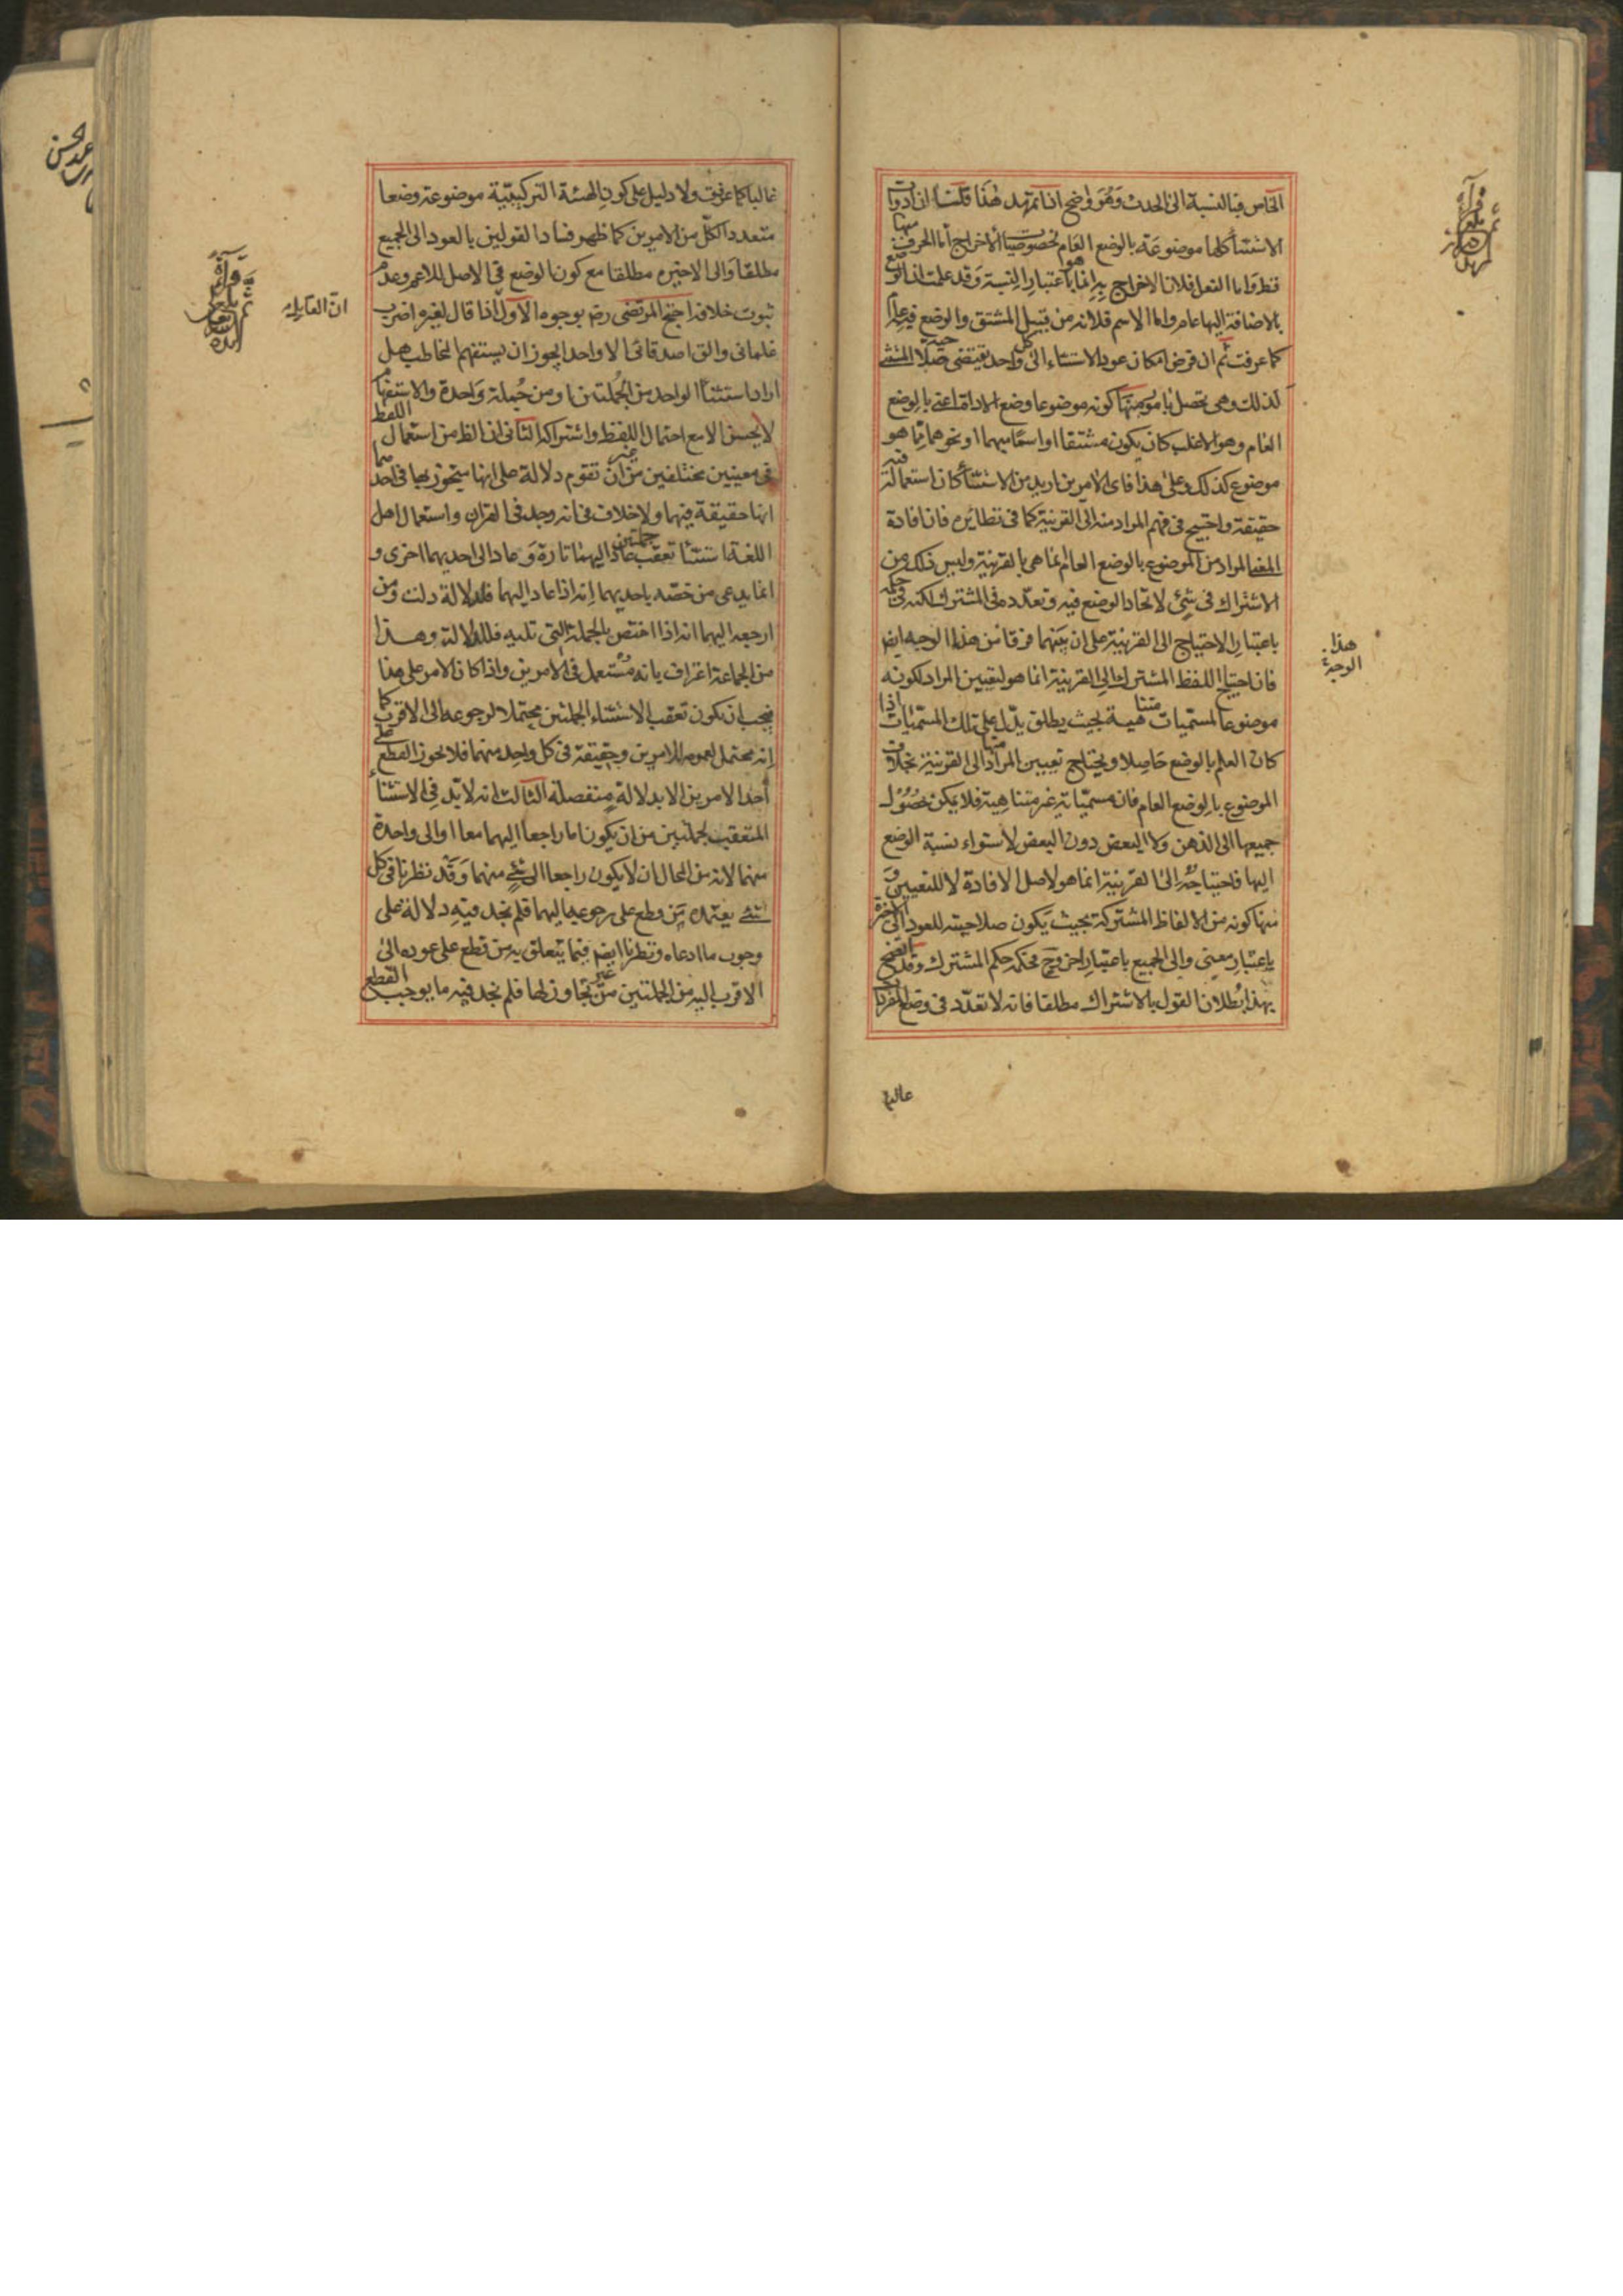 الخاص فبالنسبة الى الحدث وهو واضح اذا تمهد هذا قلنا ان ادوات
الاستثناء كلها موضوعة بالوضع العام لخصوصيات الاخراج اما الحرف منها
فظ واما الفعل فلان الاخراج به انما هو باعتبار النسبة وقد علمت ان الوضع
بالاضافة اليها عام واما الاسم فلانه من قبيل المشتق والوضع فيه عام
كما عرفت ثم ان فرض امكان عود الاستثناء الى كل واحد يقتضى صلاحية المستثنى
لذلك وهى تحصل بامور منها كونه موضوعا وضع الاداة اعنى بالوضع
العام وهو الاغلب كان يكون مشتقا او اسما مبهما او نحوهما مما هو
موضوع كذلك وعلى هذا فاى الامرين اريد من الاستثناء كان استعماله فيه
حقيقة واحتيج فى فهم المراد منه الى القرينة كما فى نظائره فان افادة
المعنى المراد من الموضوع بالوضع العام انما هى بالقرينة وليس ذلك من
الاشتراك فى شئ لاتحاد الوضع فيه وتعدده فى المشترك لكنه فى حكمه
باعتبار الاحتياج الى القرينة على ان بينهما فرقا من هذا الوجه ايض
فان احتياج اللفظ المشترك الى القرينة انما هو لتعيين المراد لكونه
موضوعا لمسميات متناهية بحيث يطلق يدل على تلك المسميات اذا
كان العلم بالوضع حاصلا ويحتاج تعيين المراد منها الى القرينة بخلاف
الموضوع بالوضع العام فان مسمياته غير متناهية فلا يمكن حصول
جميعها الى الذهن ولا البعض دون البعض لاستواء نسبة الوضع
اليها فاحتياجه الى القرينة انما هو لاصل الافادة لا للتعيين و
منها كونه من الالفاظ المشتركة بحيث يكون صلاحيته للعود الى الاخيرة
باعتبار معنى والى الجميع باعتبار اخر وح فحكمه حكم المشترك وقد اتضح
بهذا بطلان القول بالاشتراك مطلقا فانه لا تعدد فى وضع المفردات
هذا
الوجه
غالبا كما عرفت ولا دليل على كون الهيئة التركيبية موضوعة وضعا
متعددا لكل من الامرين كما ظهر فساد القولين بالعود الى الجميع
مطلقا والى الاخيرة مطلقا مع كون الوضع فى الاصل للاعم وعدم
ثبوت خلافه احتج المرتضى رضه بوجوه الاول اذا قال لغيره اضرب
غلمانى والق اصدقائى الا واحدا يجوز ان يستفهم المخاطب هل
اراد استثناء الواحد من الجملتين او من جملة واحدة والاستفهام
لا يحسن الا مع احتمال اللفظ واشتراكه الثانى ان الظ من استعمال اللفظ
فى معنيين مختلفين من غير ان تقوم دلالة على انها متجوز بها فى احدهما
انها حقيقة فيهما ولا خلاف فى انه وجد فى القران واستعمال اهل
اللغة استثناء تعقب جملتين عاد اليهما تارة وعاد الى احديهما اخرى و
انما يدعى من خصه باحديهما انه اذا عاد اليهما فلدلالة دلت ومن
ارجعه اليهما انه اذا اختص بالجملة التى تليه فللدلالة وهذا
من الجماعة اعتراف بانه مستعمل فى الامرين واذا كان الامر على هذا
فيجب ان يكون تعقب الاستثناء الجملتين محتملا لرجوعه الى الاقرب كما
انه محتمل لعموم الامرين وحقيقة فى كل واحد منهما فلا يجوز القطع على
احد الامرين الا بدلالة منفصلة الثالث انه لا بد فى الاستثناء
المتعقب لجملتين من ان يكون اما راجعا اليهما معا او الى واحدة
منهما لانه من المحال ان لا يكون راجعا الى شئ منهما وقد نظرنا فى كل
شئ يعتمده من قطع على رجوعه اليهما فلم نجد فيه دلالة على
وجوب ما ادعاه ونظرنا ايضا فيما يتعلق به من قطع على عوده الى
الاقرب اليه من الجملتين من غير تجاوز لها فلم نجد فيه ما يوجب القطع